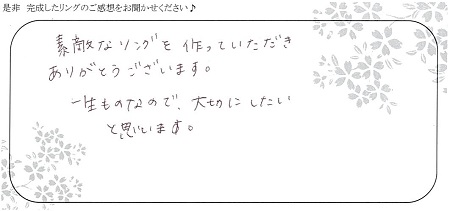 是非 完成したリングのご感想をお聞かせください♪
素敵なリングを作っていただき
ありがとうございます。
一生ものなので、大切にしたい
と思います。